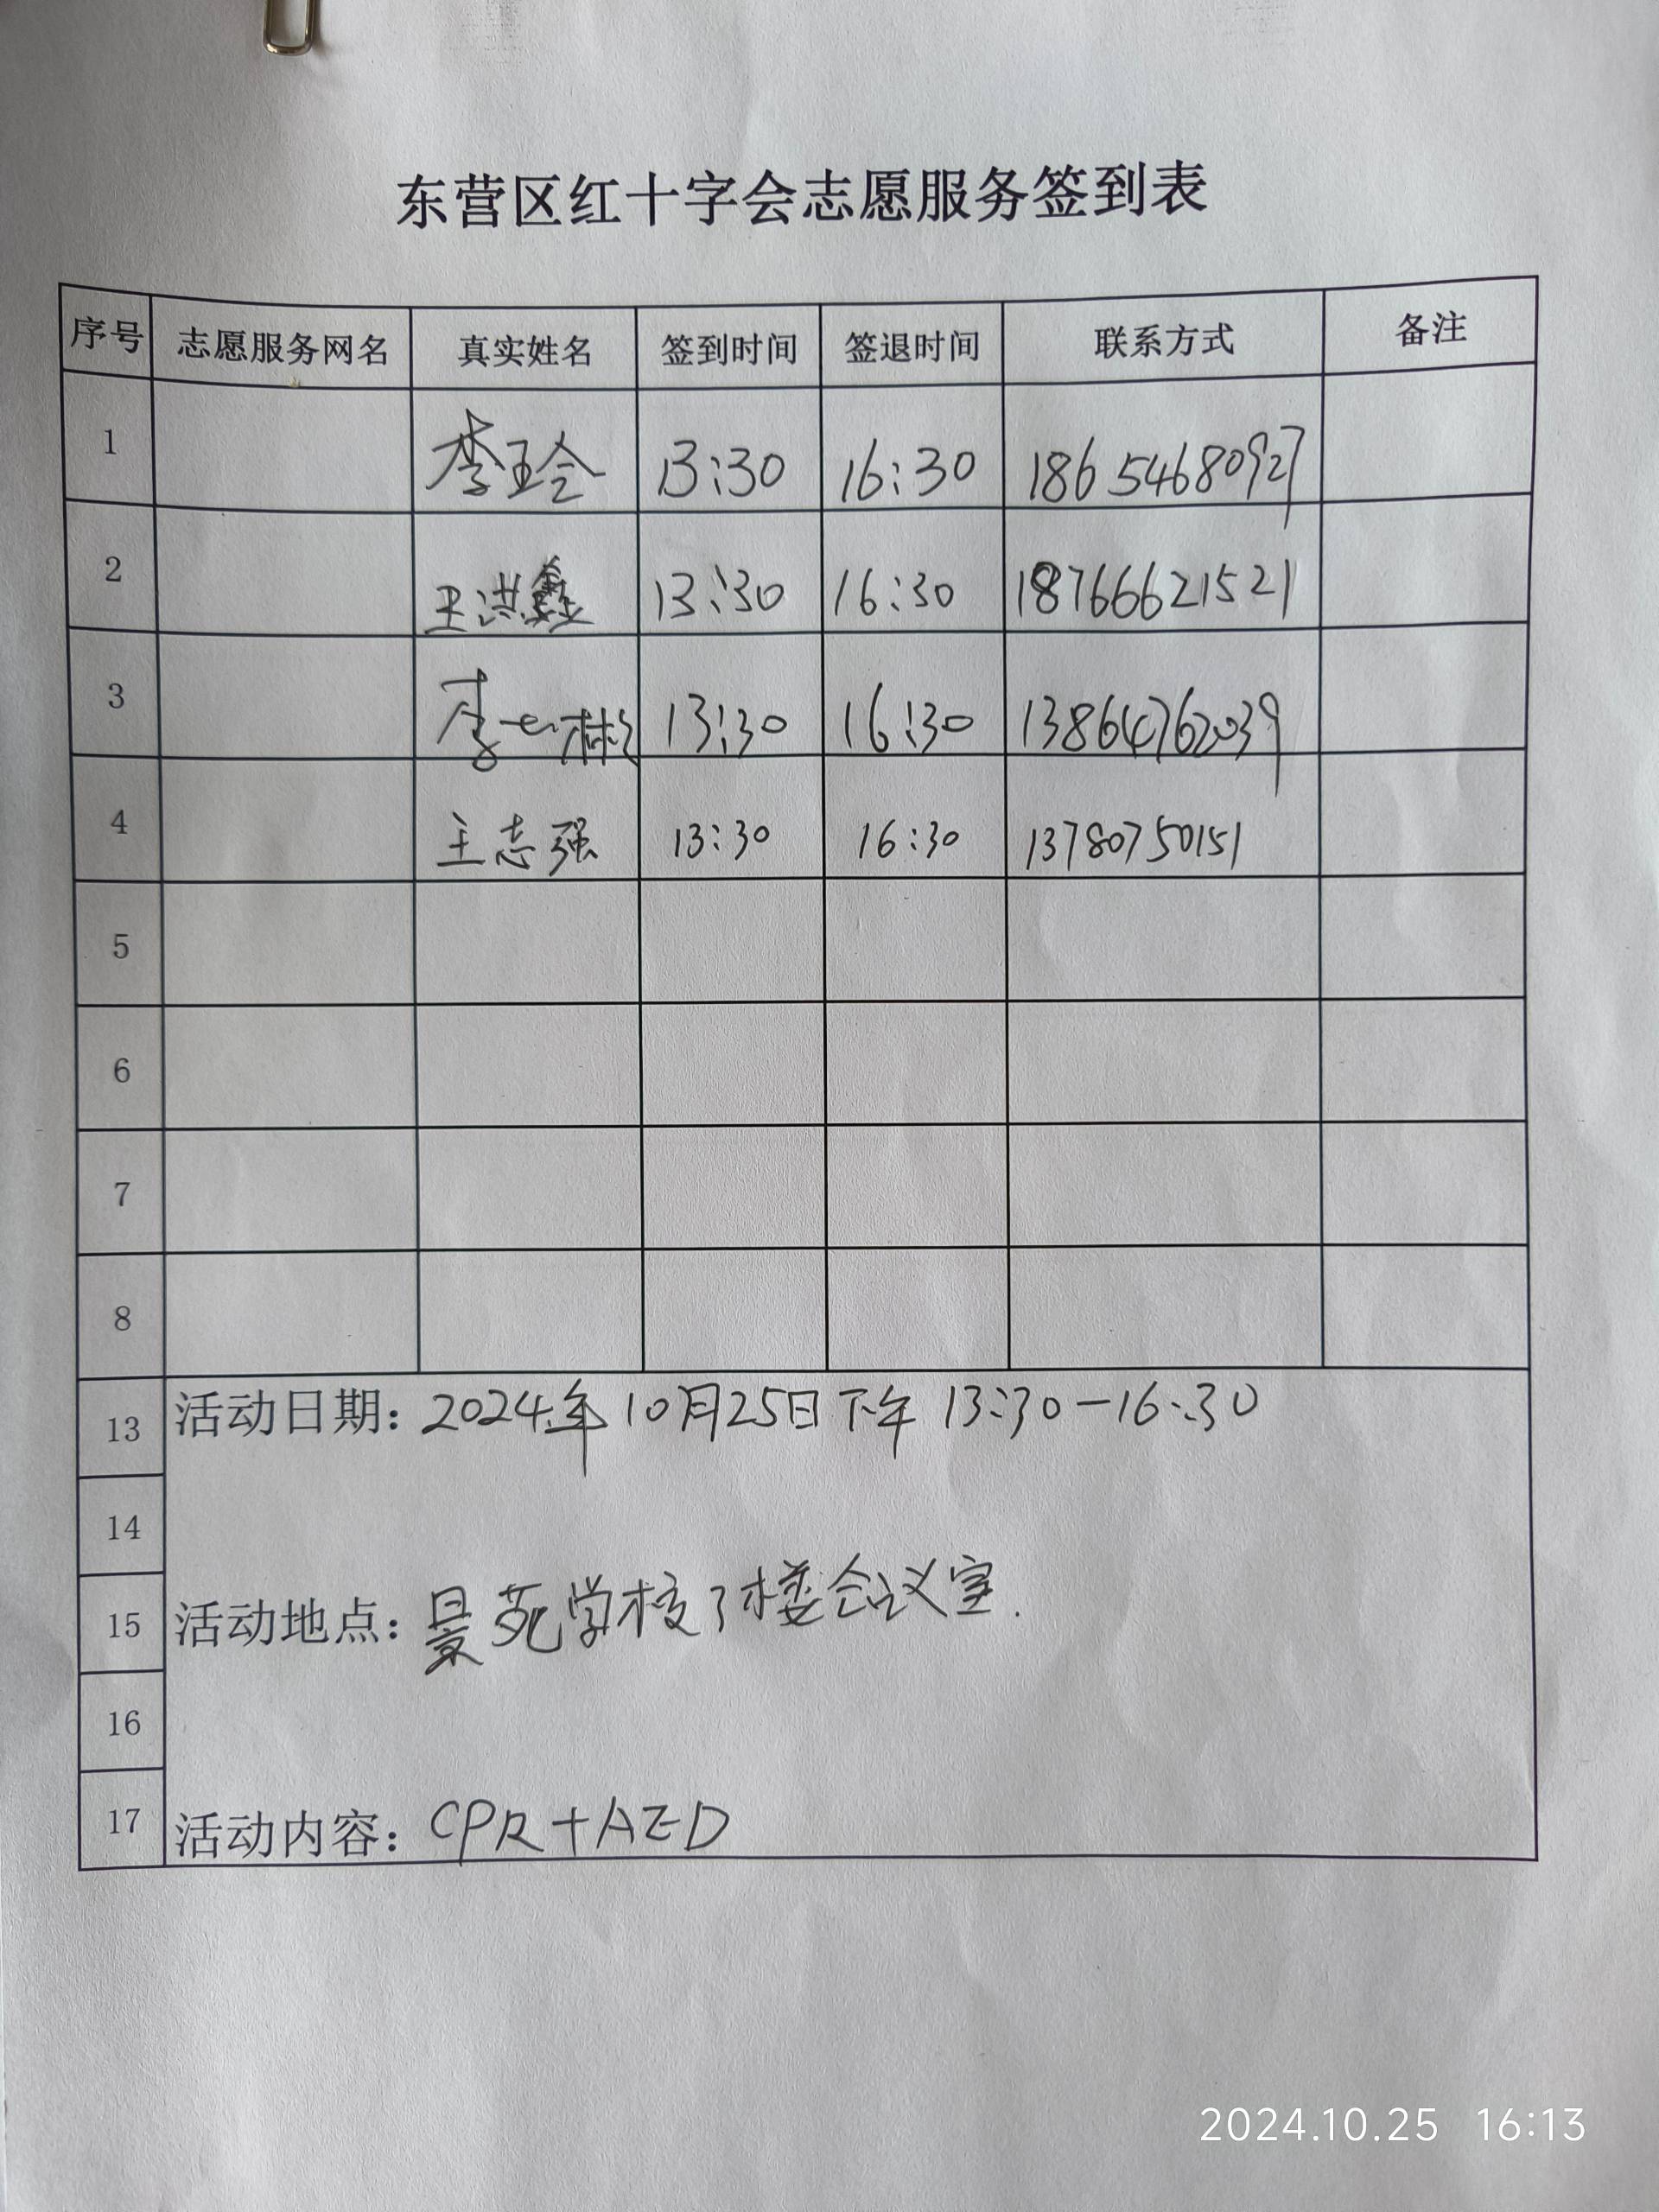 东营区红十字会志愿服务签到表
序号 志愿服务网名 真实姓名 签到时间 签退时间 联系方式 备注
1 李玉玲 13:30 16:30 18654680927
2 王洪鑫 13:30 16:30 18766621521
3 李 13:30 16:30 13864762039
4 王志强 13:30 16:30 13780750151
5
6
7
8
13 活动日期：2024年10月25日下午 13:30-16:30
14
15 活动地点：景苑学校 楼会议室.
16
17 活动内容：CPR+AED
2024.10.25 16:13